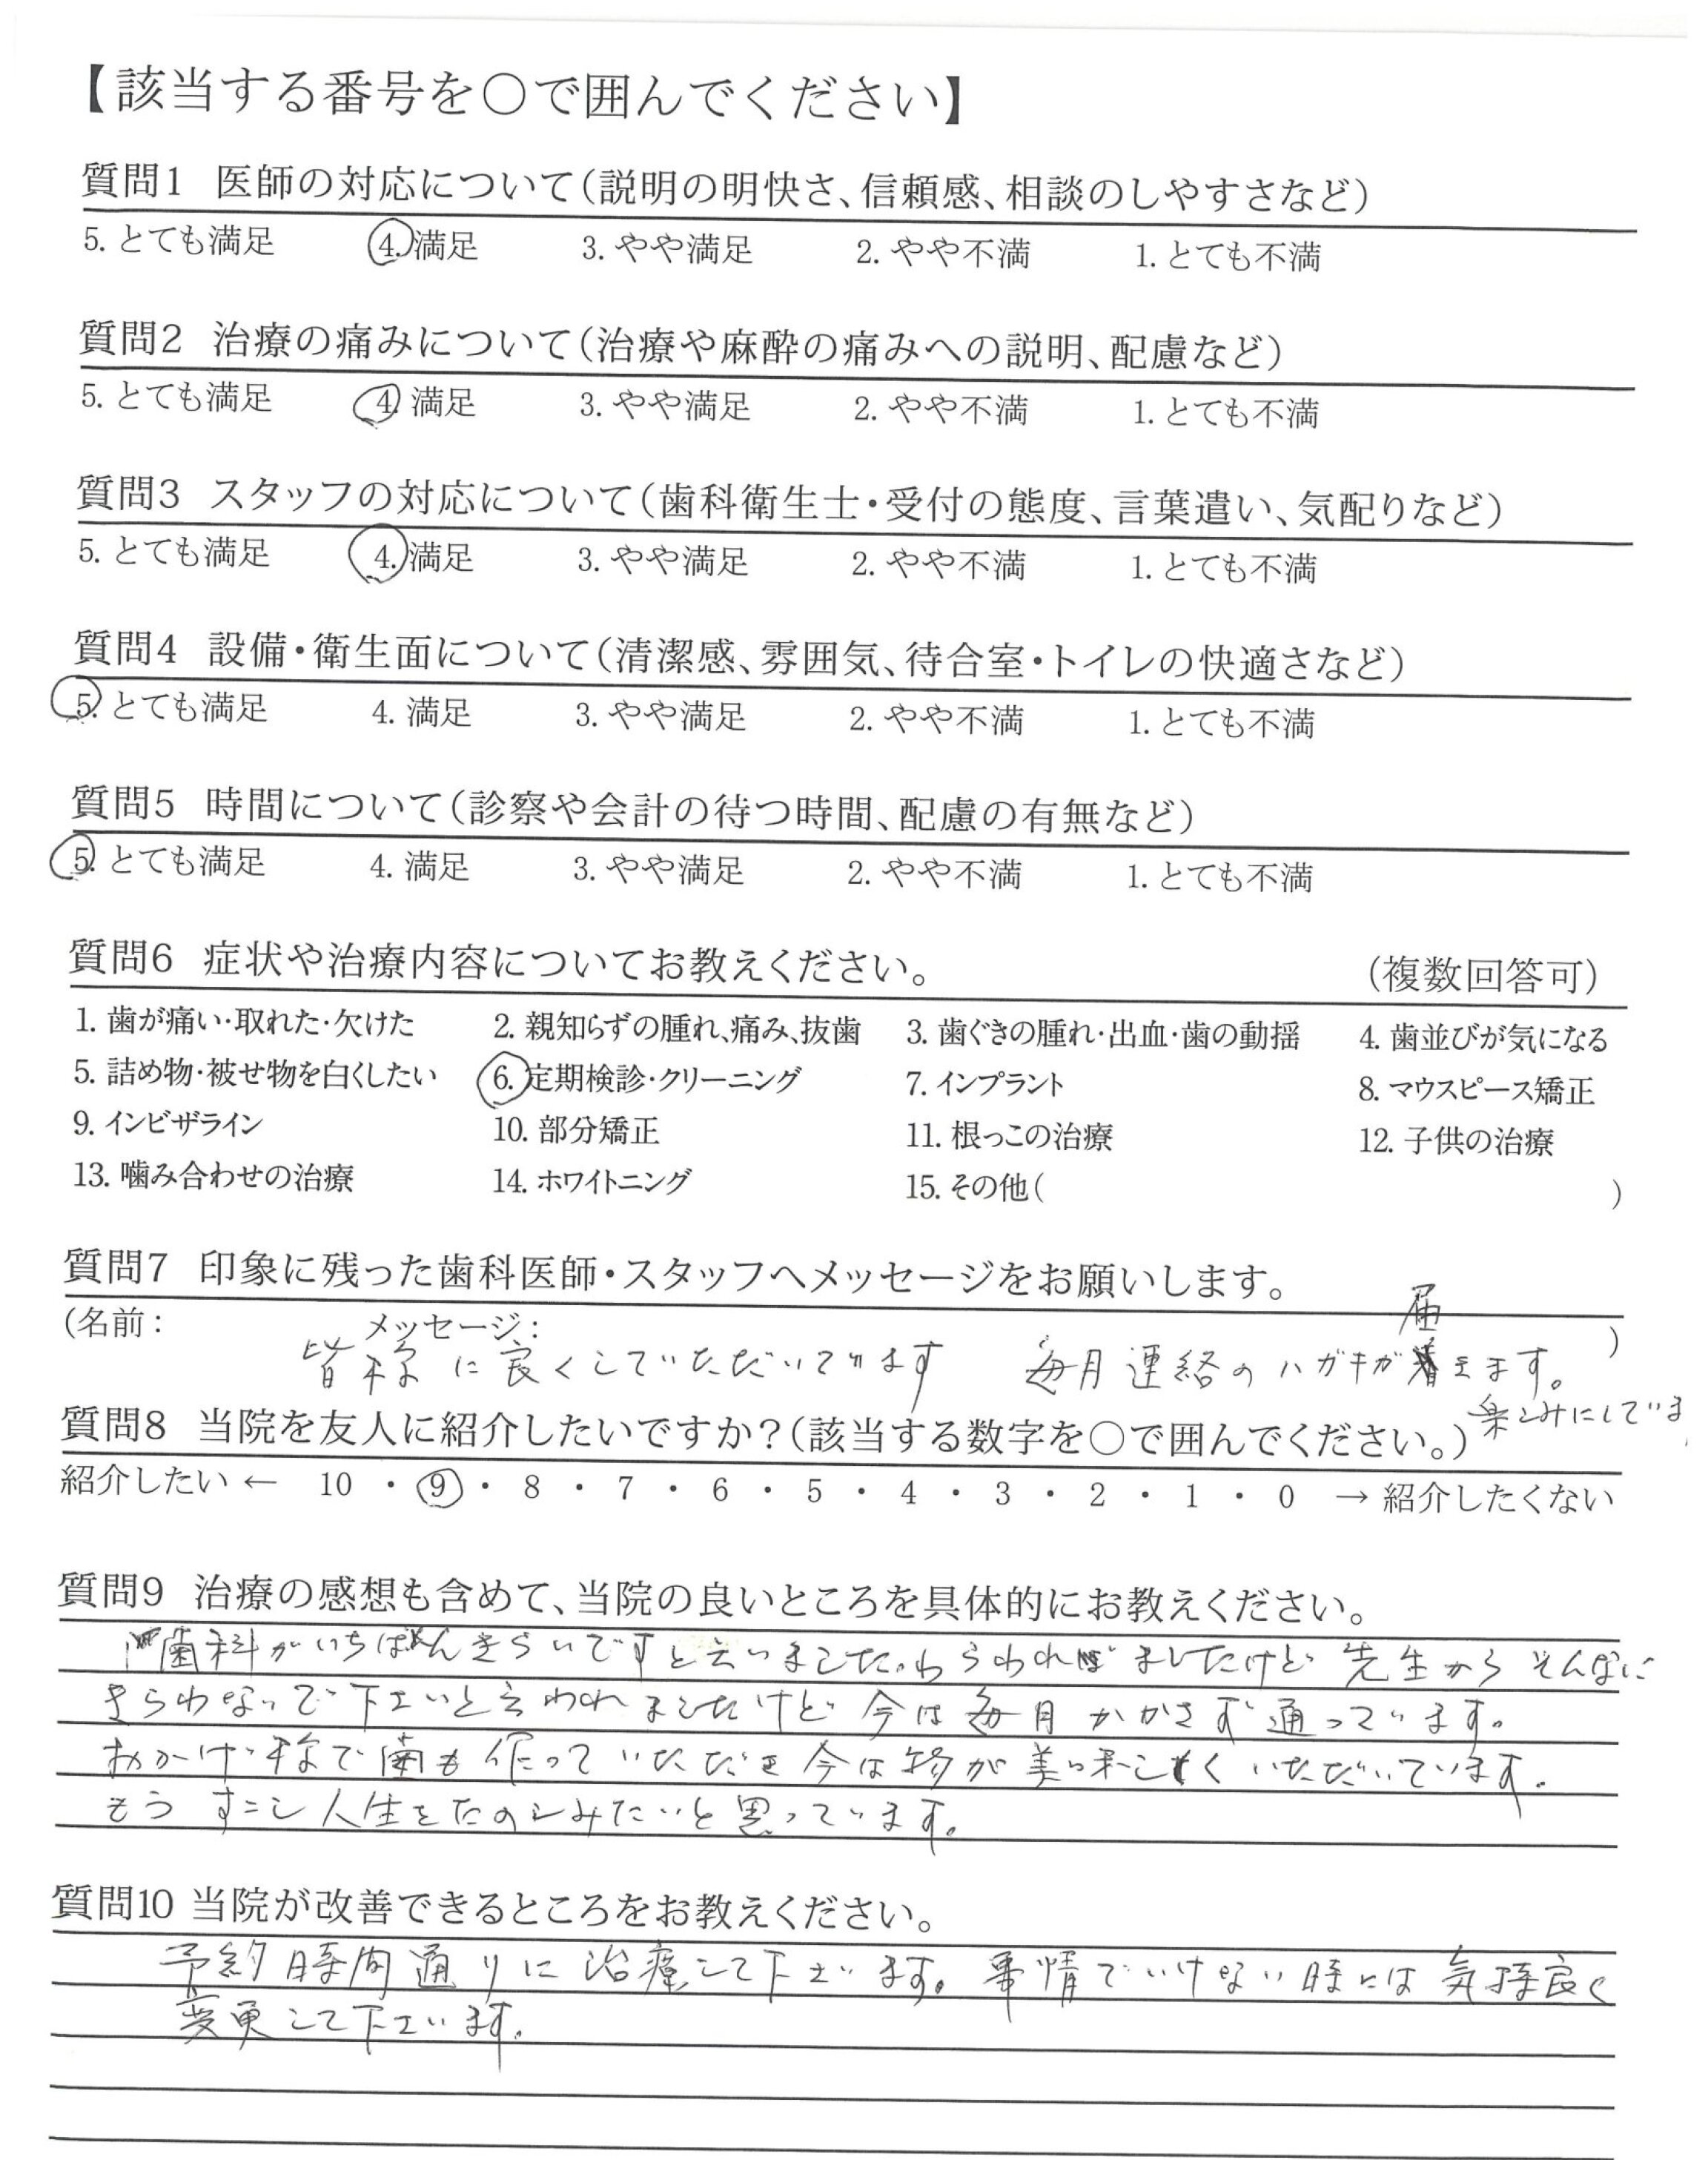 【該当する番号を○で囲んでください】
質問1 医師の対応について(説明の明快さ、信頼感、相談のしやすさなど)
5. とても満足 4. 満足 3. やや満足 2. やや不満 1. とても不満
質問2 治療の痛みについて(治療や麻酔の痛みへの説明、配慮など)
5. とても満足 4. 満足 3. やや満足 2. やや不満 1. とても不満
質問3 スタッフの対応について(歯科衛生士・受付の態度、言葉遣い、気配りなど)
5. とても満足 4. 満足 3. やや満足 2. やや不満 1. とても不満
質問4 設備・衛生面について(清潔感、雰囲気、待合室・トイレの快適さなど)
5. とても満足 4. 満足 3. やや満足 2. やや不満 1. とても不満
質問5 時間について(診察や会計の待つ時間、配慮の有無など)
5. とても満足 4. 満足 3. やや満足 2. やや不満 1. とても不満
質問6 症状や治療内容についてお教えください。 (複数回答可)
1. 歯が痛い・取れた・欠けた 2. 親知らずの腫れ、痛み、抜歯 3. 歯ぐきの腫れ・出血・歯の動揺 4. 歯並びが気になる
5. 詰め物・被せ物を白くしたい 6. 定期検診・クリーニング 7. インプラント 8. マウスピース矯正
9. インビザライン 10. 部分矯正 11. 根っこの治療 12. 子供の治療
13. 噛み合わせの治療 14. ホワイトニング 15. その他( )
質問7 印象に残った歯科医師・スタッフへメッセージをお願いします。
(名前: メッセージ: )
皆様に良くしていただいています 毎月連絡のハガキが届きます。
楽しみにしていま
質問8 当院を友人に紹介したいですか?(該当する数字を○で囲んでください。)
紹介したい ← 10 ・ 9 ・ 8 ・ 7 ・ 6 ・ 5 ・ 4 ・ 3 ・ 2 ・ 1 ・ 0 → 紹介したくない
質問9 治療の感想も含めて、当院の良いところを具体的にお教えください。
歯科がいちばんきらいですと言いました。わらわれましたけど 先生からそんなに
きらわないで下さいと言われましたけど 今は毎月かかさず通っています。
おかげ様で歯も作っていただき今は物が美味しくいただいています。
もうすこし人生をたのしみたいと思っています。
質問10 当院が改善できるところをお教えください。
予約時間通りに治療して下さいます。事情でいけない時には気持良く
変更して下さいます。